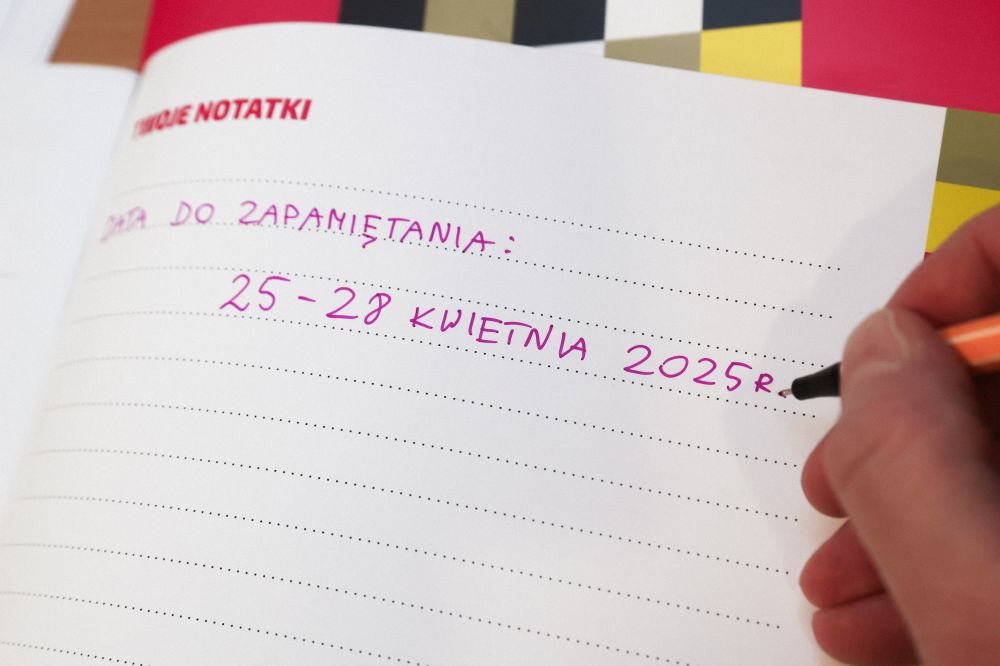 TWOJE NOTATKI
DATA DO ZAPAMIĘTANIA:
25-28 KWIETNIA 2025R.